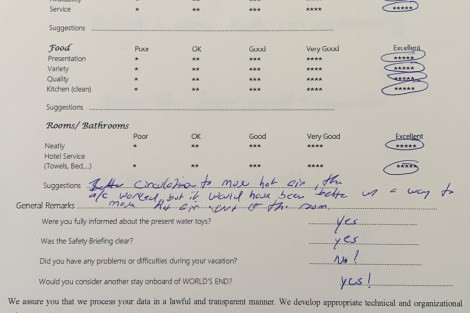 Service * ** *** **** *****
Suggestions
Food Poor OK Good Very Good Excellent
Presentation * ** *** **** *****
Variety * ** *** **** *****
Quality * ** *** **** *****
Kitchen (clean) * ** *** **** *****
Suggestions
Rooms/ Bathrooms
Poor OK Good Very Good Excellent
Neatly * ** *** **** *****
Hotel Service
(Towels, Bed,...) * ** *** **** *****
Suggestions Better circulation to move hot air, the
a/c worked, but it would have been better w a way to
General Remarks move hot air out of the room.
Were you fully informed about the present water toys? Yes
Was the Safety Briefing clear? yes
Did you have any problems or difficulties during your vacation? No!
Would you consider another stay onboard of WORLD'S END? yes!
We assure you that we process your data in a lawful and transparent manner. We develop appropriate technical and organizational